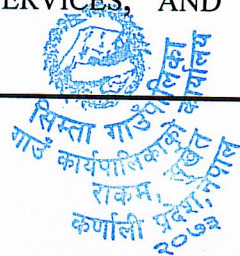 ERVICES, AND
सिम्ता गाउँपालिका
गाउँ कार्यपालिकाको कार्यालय
राकम, सुर्खेत
कर्णाली प्रदेश, नेपाल
२०७३